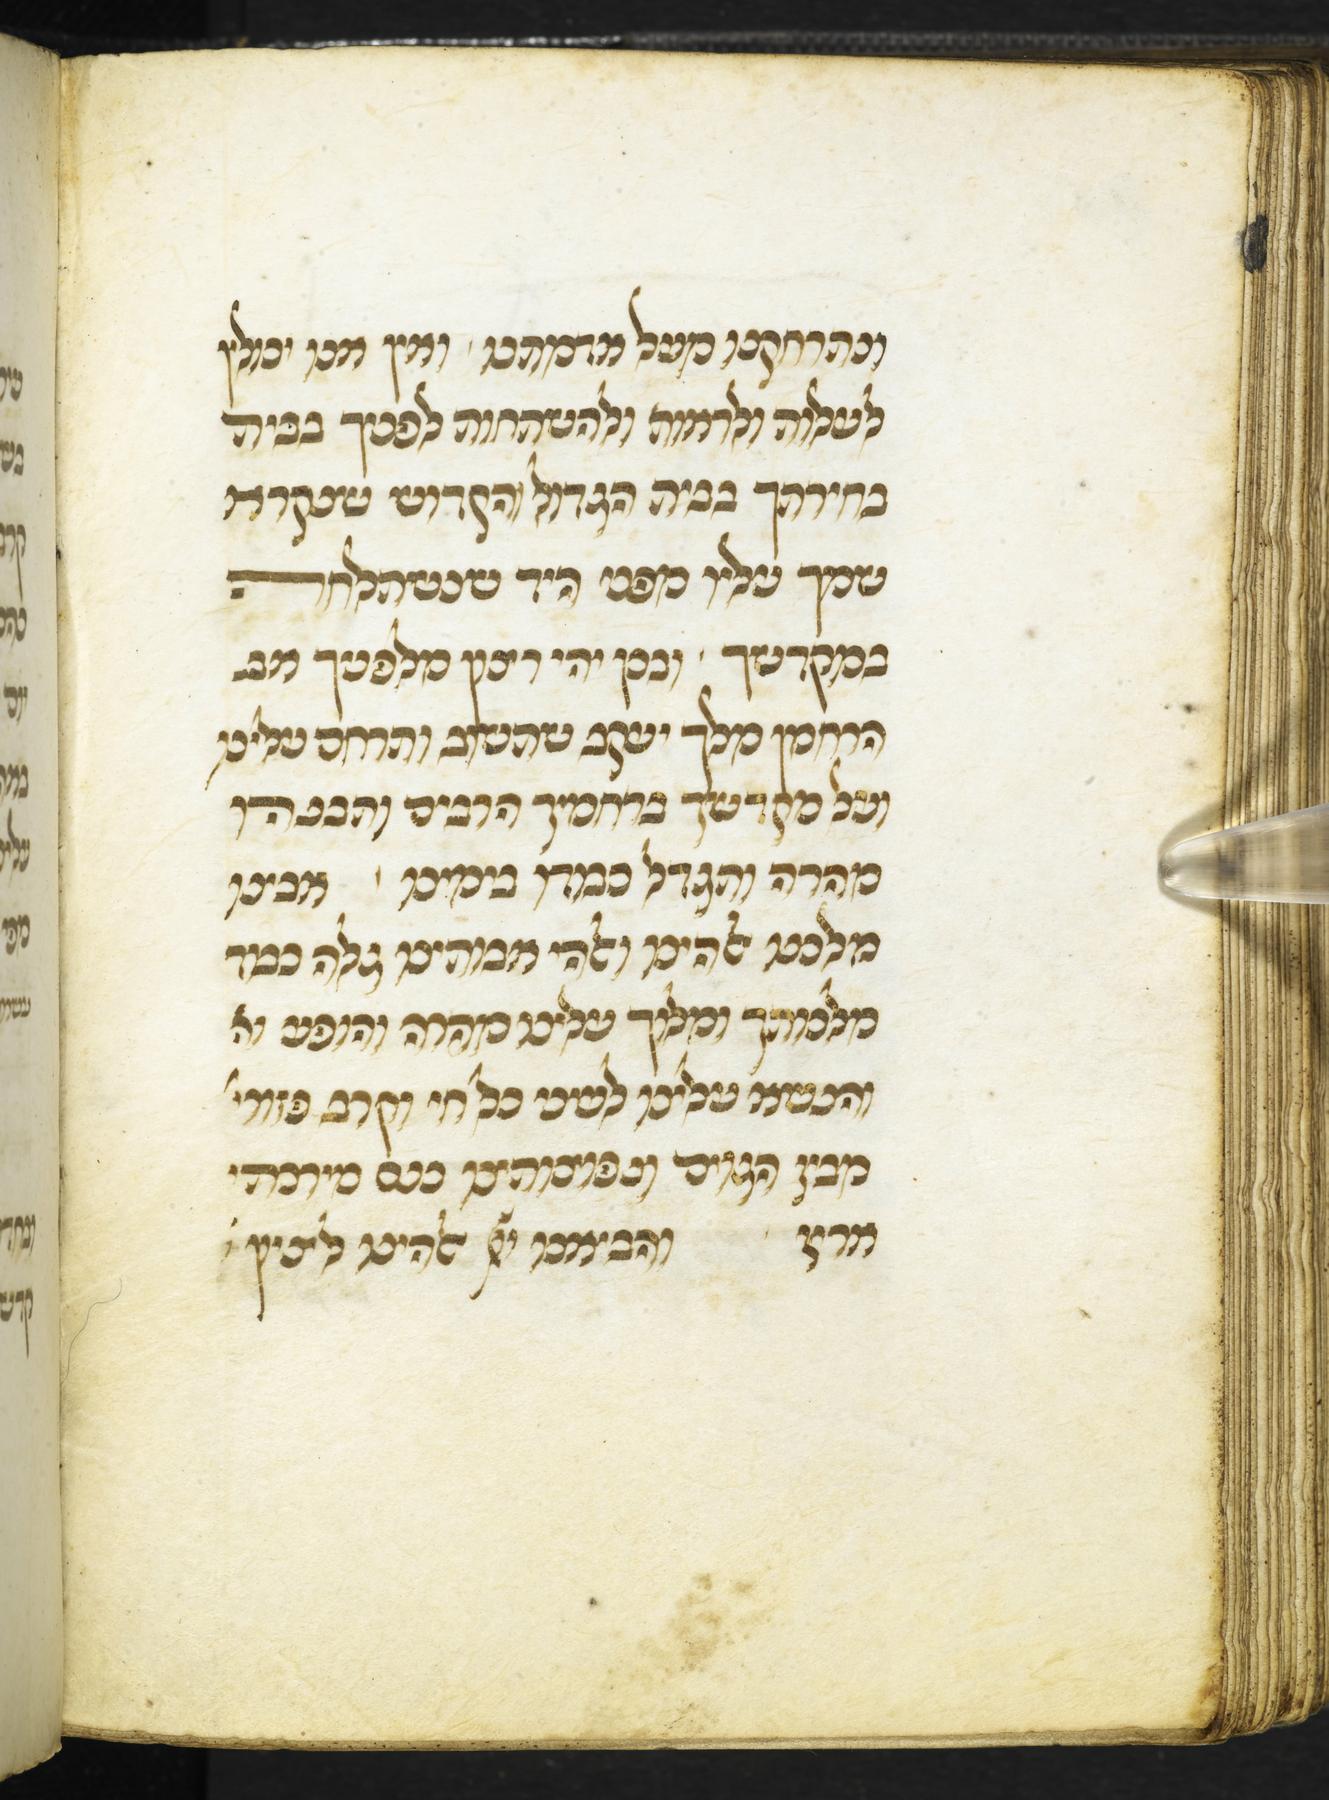 ונתרחקנו מעל אדמתנו ׳ ואין אנו יכולין
לעלות ולראות ולהשתחוות לפניך בבית
בחירתך בבית הגדול והקדוש שנקרא
שמך עליו מפני היד שנשתלחה
במקדשך ׳ ובכן יהי רצון מלפניך אב
הרחמן מלך יעקב שתשוב ותרחם עלינו
ועל מקדשך ברחמיך הרבים ותבנהו
מהרה ותגדל כבודו בימינו ׳ אבינו
מלכנו אלהינו ואלהי אבותינו גלה כבוד
מלכותך ומלוך עלינו מהרה והופע וא
והנשא עלינו לעיני כל חי וקרב פזורי׳
מבין הגוים ונפוצותינו כנס מירכתי
ארץ ׳ והביאנו אלהינו לציון ׳